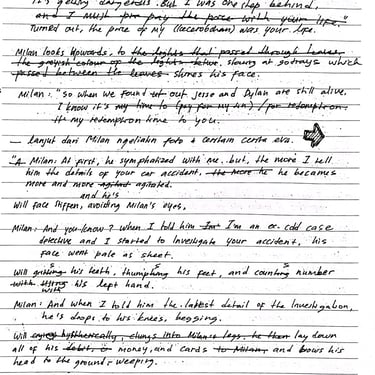 It's getting dangerous. But I was one step behind,
and I must pay the price with your life."
Turned out, the price of my (kecerobohan) was your life.
Milan looks upwards. to the lights that passed through leaves
the greyish colour of the lights
passed between the leaves shines his face.
Milan: "So when we found out Jesse and Dylan are still alive.
I know it's my time to (pay for my sin) / for redemption.
It's my redemption time to you.
— lanjut dari Milan ngeliatin foto & certain cerita eva.
"A Milan: At first, he symphatized with me. but, the more I tell
him the details of your car accident, the more he he becames
more and more agitad agitated.
and he's
Will face stiffen, avoiding Milan's eyes,
Milan: And you know? When I told him I'm an ex-cold case
detective and I started to investigate your accident, his
face went pale as sheet.
Will gritting his teeth, thumping his feet, and counting number
with his left hand.
Milan: And when I told him the latest detail of the Investigation,
he's drops to his knees, begging.
Will crying hysterically, clungs into Milan's legs. he then lay down
all of his debit, money, and cards to Milan, and bows his
head to the ground, weeping.